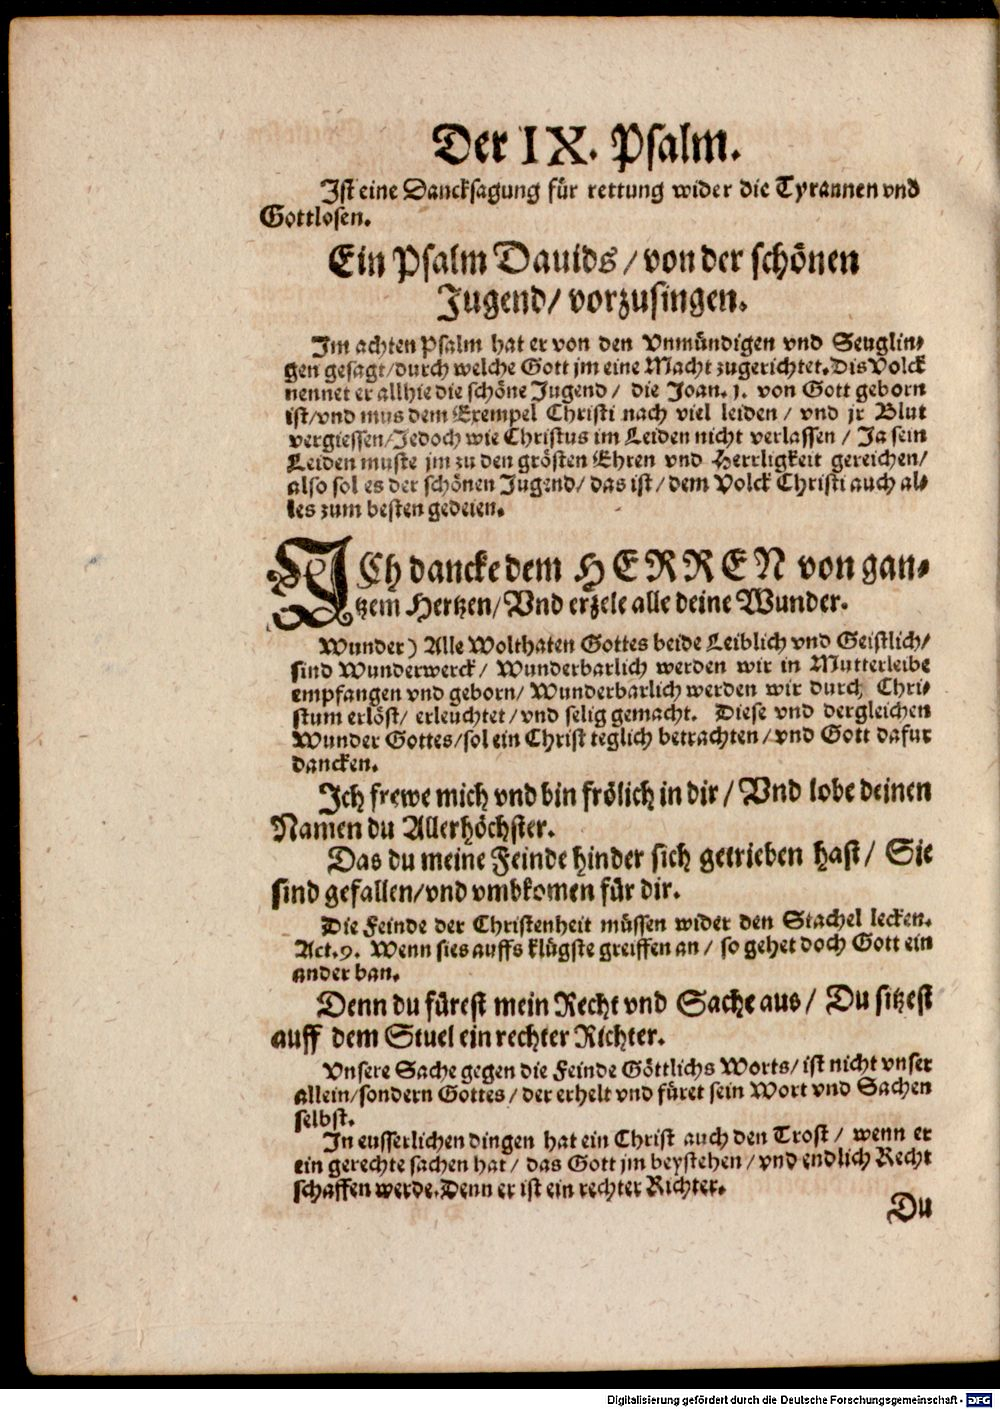 Der IX. Psalm.
Ist eine Dancksagung für rettung wider die Tyrannen vnd
Gottlosen.
Ein Psalm Dauids / von der schönen
Jugend / vorzusingen.
Im achten Psalm hat er von den Vnmündigen vnd Seuglin-
gen gesagt / durch welche Gott jm eine Macht zugerichtet. Dis Volck
nennet er allhie die schöne Jugend / die Joan. 1. von Gott geborn
ist / vnd mus dem Exempel Christi nach viel leiden / vnd jr Blut
vergiessen / Jedoch wie Christus im Leiden nicht verlassen / Ja sein
Leiden muste jm zu den grösten Ehren vnd Herrligkeit gereichen /
also sol es der schönen Jugend / das ist / dem Volck Christi auch al-
les zum besten gedeien.
ICh dancke dem HERREN von gan-
tzem Hertzen / Vnd erzele alle deine Wunder.
Wunder) Alle Wolthaten Gottes beide Leiblich vnd Geistlich /
sind Wunderwerck / Wunderbarlich werden wir in Mutterleibe
empfangen vnd geborn / Wunderbarlich werden wir durch Chri-
stum erlöst / erleuchtet / vnd selig gemacht. Diese vnd dergleichen
Wunder Gottes / sol ein Christ teglich betrachten / vnd Gott dafur
dancken.
Ich frewe mich vnd bin frölich in dir / Vnd lobe deinen
Namen du Allerhöchster.
Das du meine Feinde hinder sich getrieben hast / Sie
sind gefallen / vnd vmbkomen für dir.
Die Feinde der Christenheit müssen wider den Stachel lecken.
Act. 9. Wenn sies auffs klügste greiffen an / so gehet doch Gott ein
ander ban.
Denn du fürest mein Recht vnd Sache aus / Du sitzest
auff dem Stuel ein rechter Richter.
Vnsere Sache gegen die Feinde Göttlichs Worts / ist nicht vnser
allein / sondern Gottes / der erhelt vnd füret sein Wort vnd Sachen
selbst.
In eusserlichen dingen hat ein Christ auch den Trost / wenn er
ein gerechte sachen hat / das Gott jm beystehen / vnd endlich Recht
schaffen werde. Denn er ist ein rechter Richter.
Du
Digitalisierung gefördert durch die Deutsche Forschungsgemeinschaft - DFG